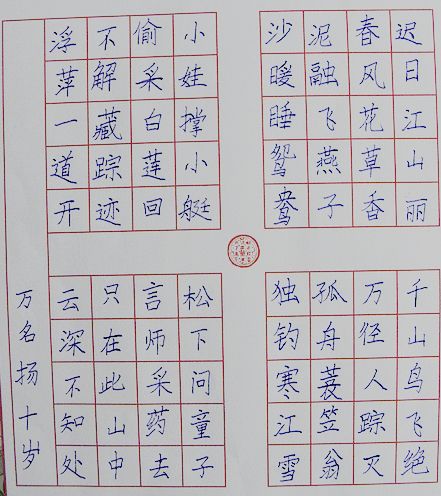 迟日江山丽
春风花草香
泥融飞燕子
沙暖睡鸳鸯
小娃撑小艇
偷采白莲回
不解藏踪迹
浮萍一道开
千山鸟飞绝
万径人踪灭
孤舟蓑笠翁
独钓寒江雪
松下问童子
言师采药去
只在此山中
云深不知处
万名扬十岁